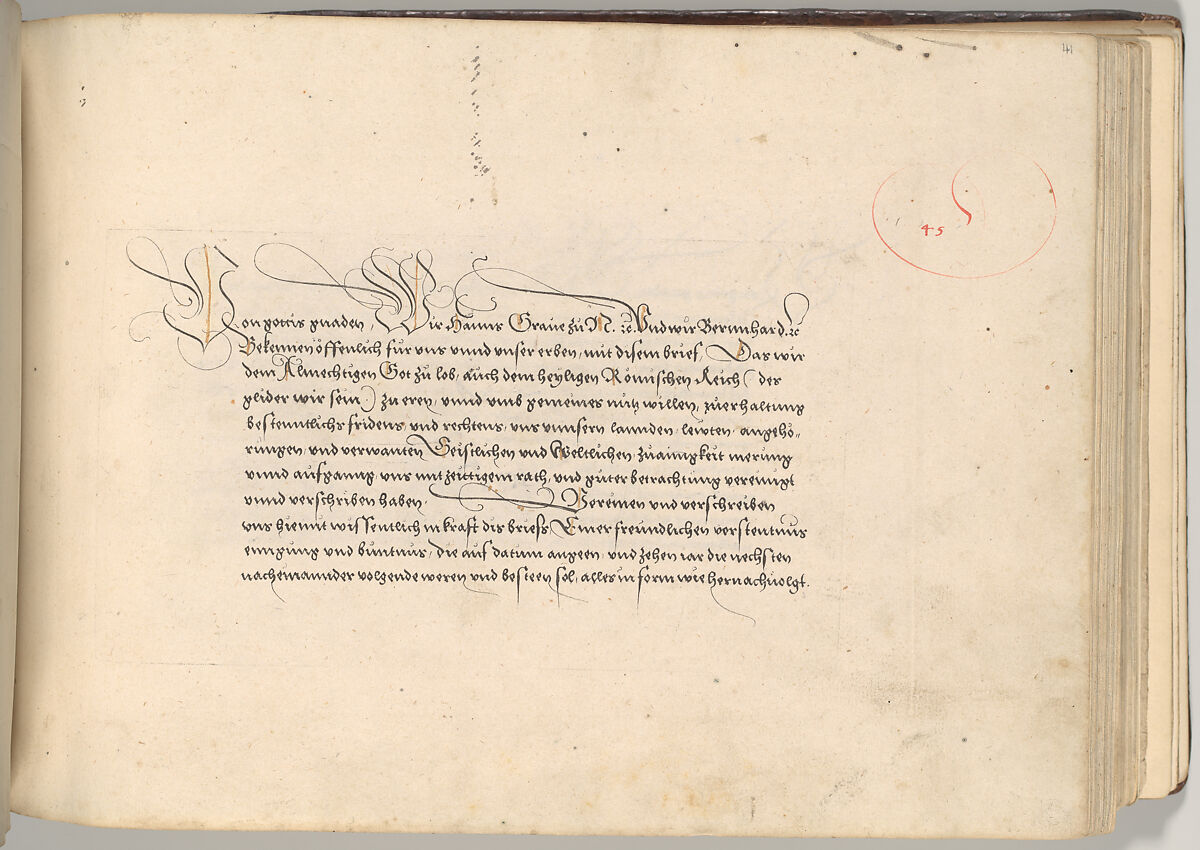 41
45
Von gottis gnaden, Wir Hanns Graue zu N. ꝛc. Vnd wir Bernnhard. ꝛc
Bekennen öffenlich fur vns vnnd vnser erben, mit disem brief, Das wir
dem Almechtigen Got zu lob, auch dem heyligen Römischen Reich (des
glider wir sein) zu eren, vnnd vmb gemeines nutz willen, zuerhaltung
bestenntlichs fridens, vnd rechtens, vns vnnsern lannden, lewten, angehö-
rungen, vnd verwanten Geistlichen vnd Weltlichen, zuainigkeit merung
vnnd aufganng, vns mit zeittigem rath, vnd guter betrachtung vereinigt
vnnd verschriben haben. Vereinen vnd verschreiben
vns hiemit wissentlich in kraft dis briefs Einer freundlichen vorstentnus
einigung vnd buntnus, die auf datum angeen, vnd zehen iar die nechsten
nacheinannder volgende weren vnd besteen sol, alles in form wie hernachuolgt.